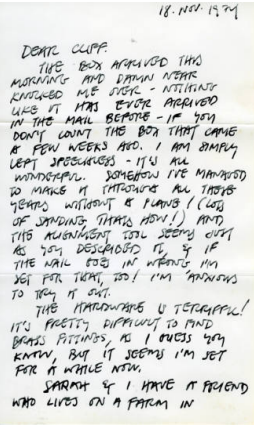 18. NOV. 1974
DEAR CLIFF.
THE BOX ARRIVED THIS
MORNING AND DAMN NEAR
KNOCKED ME OVER - NOTHING
LIKE IT HAS EVER ARRIVED
IN THE MAIL BEFORE - IF YOU
DON'T COUNT THE BOX THAT CAME
A FEW WEEKS AGO. I AM SIMPLY
LEFT SPEECHLESS - IT'S ALL
WONDERFUL. SOMEHOW I'VE MANAGED
TO MAKE IT THROUGH ALL THESE
YEARS WITHOUT A PLANE! (LOTS
OF SANDING THATS HOW!) AND
THE ALIGNMENT TOOL SEEMS JUST
AS YOU DESCRIBED IT, & IF
THE NAIL GOES IN WRONG I'M
SET FOR THAT, TOO! I'M ANXIOUS
TO TRY IT OUT.
THE HARDWARE IS TERRIFIC!
IT'S PRETTY DIFFICULT TO FIND
BRASS FITTINGS, AS I GUESS YOU
KNOW, BUT IT SEEMS I'M SET
FOR A WHILE NOW.
SARAH & I HAVE A FRIEND
WHO LIVES ON A FARM IN